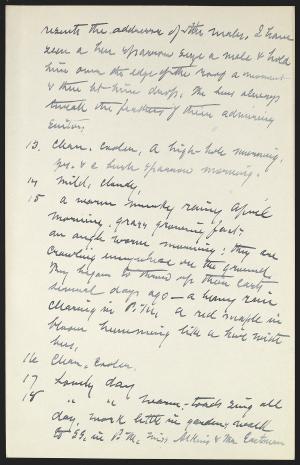 resents the addresses of the males. I have
seen a hen sparrow seize a male & hold
him over the edge of the roof a moment
& then let him drop. The hens always
the feathers of their admiring
suitors.
13. Clear, cooler, a high-hole morning,
yes, & a bush sparrow morning.
14 Mild, cloudy,
15 a warm smoky rainy April
morning, grass growing fast;
an angle-worm morning; they are
crawling everywhere on the ground.
They began to throw up their casts
several days ago — a heavy rain
clearing in P.M. a red maple in
bloom humming like a hive with
bees.
16 Clear, cooler.
17 Lovely day
18 " " warm, toads sing all
day, work little in garden, went
to in P.M. Miss & Mrs Eastman